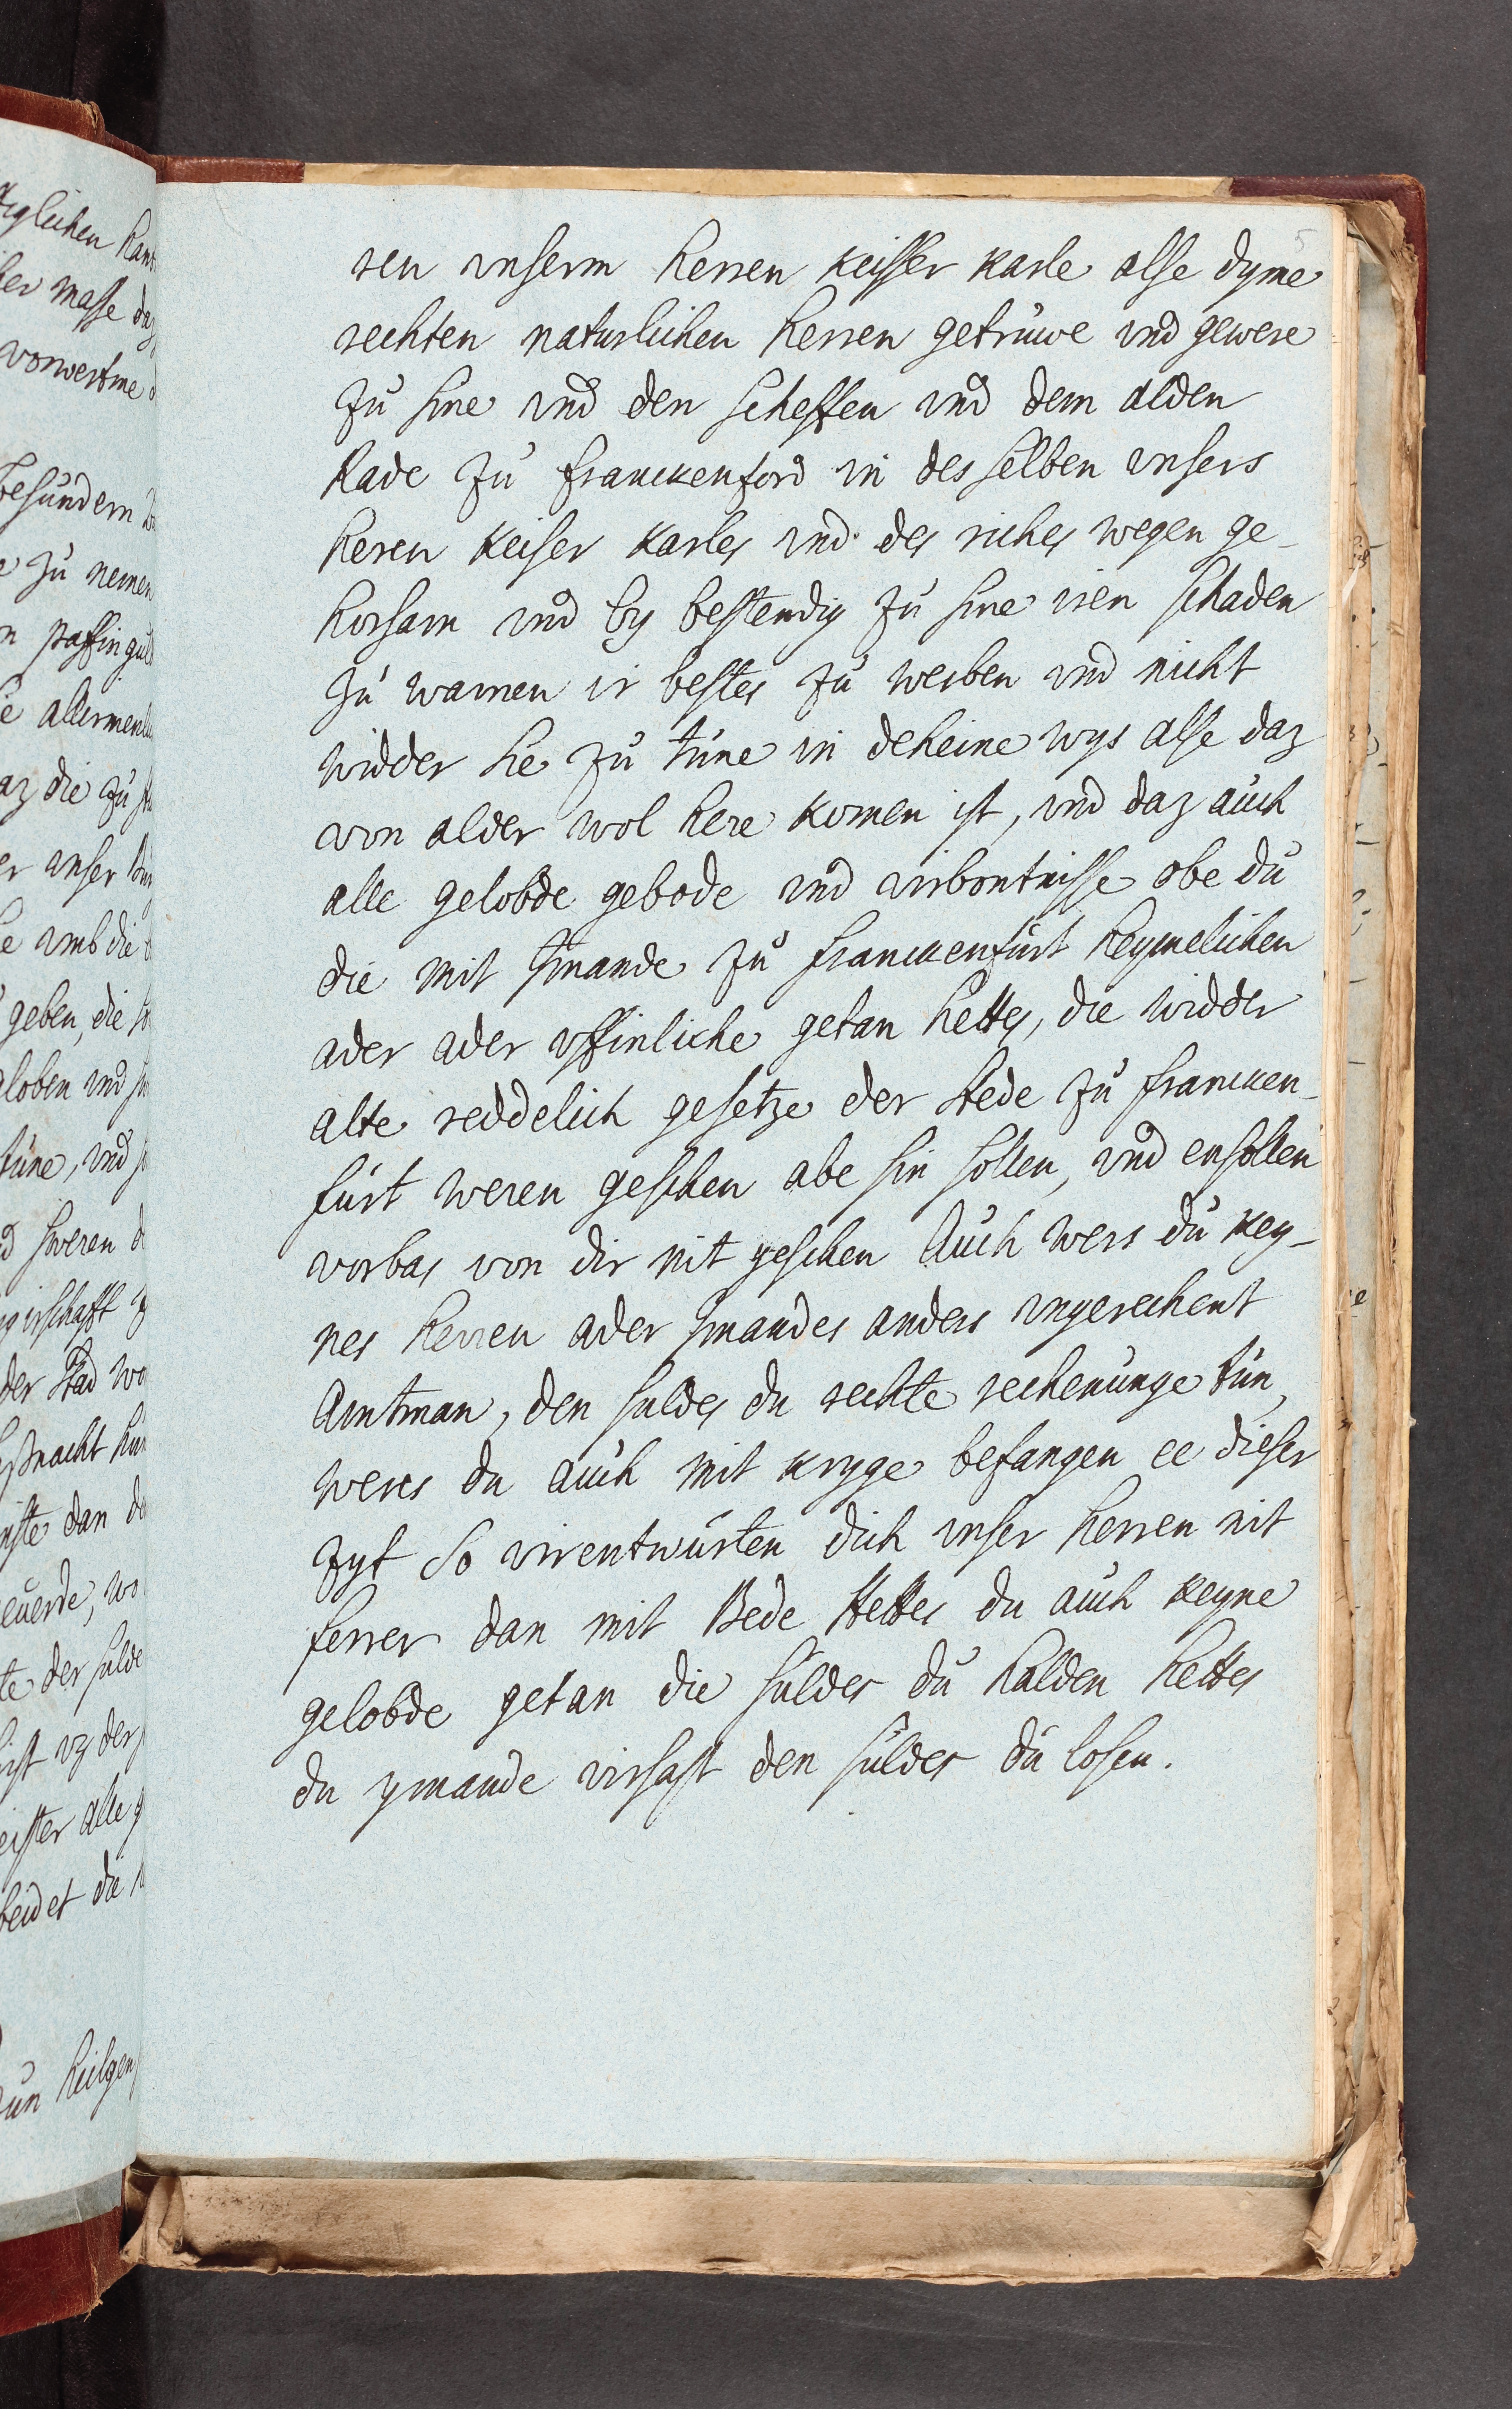 5
ren vnserm herren keisser karle alse dyme
rechten naturlichen herren getrúwe vnd gewere
zú sine vnd den scheffen vnd dem alden
Rade zú franckenford in des selben vnsers
heren keiser karles vnd des riches wegen ge-
horsam vnd by bestendig zú sine iren schaden
zú warnen ir bestes zú werben vnd nicht
widder sie zú túne in deheine wys alse daz
von alder wol here komen ist, vnd daz aúch
alle gelobde gebode vnd virbontnisse obe dú
die mit ymande zú franckenfúrt heymelichen
ader ader vffinliche getan hettes, die widder
alte reddelich gesetze der stede zú francken-
fúrt weren geschen abe sin sollen, vnd ensollen
vorbas von dir nit geschen Aúch wers dú key-
nes herren ader ymandes anders vngerechent
Amtman, den suldes du rechte rechenúnge tún,
weres du aúch mit kryge befangen ee dieser
zyt So virentwúrten dich vnser herren nit
ferrer dan mit Bede Hettes du aúch keyne
gelobde getan die súldes dú halden hettes
du ymande virsast den súldes dú losen.